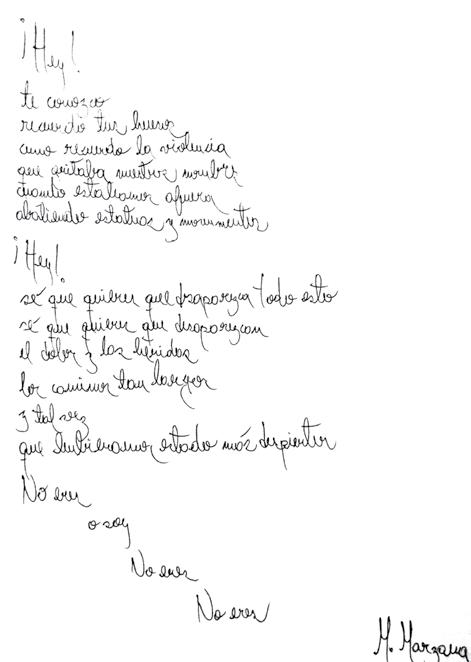 ¡Hey!
te conozco
recuerdo tus huesos
como recuerdo la violencia
que gritaba nuestros nombres
cuando estabamos afuera
abatiendo estatuas y monumentos
¡Hey!
sé que quieres que desaparezca todo esto
sé que quieres que desaparezcan
el dolor y las heridas
los caminos tan largos
y tal vez
que hubieramos estado más despiertos
No eres
o soy
No eres
No eres
M. Marzana